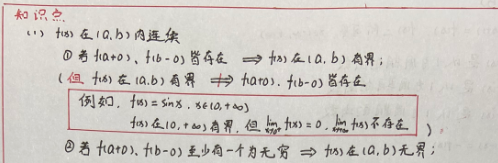 知识点
(1) f(x)在(a,b)内连续
① 若f(a+0)、f(b-0)皆存在 ⟹ f(x)在(a,b)有界;
(但 f(x)在(a,b)有界 ⇏ f(a+0)、f(b-0)皆存在
例如. f(x)=sinx. x∈(0,+∞)
f(x)在(0,+∞)有界,但 lim f(x)=0. lim f(x)不存在 ).
② 若f(a+0)、f(b-0)至少有一个为无穷 ⟹ f(x)在(a,b)无界;